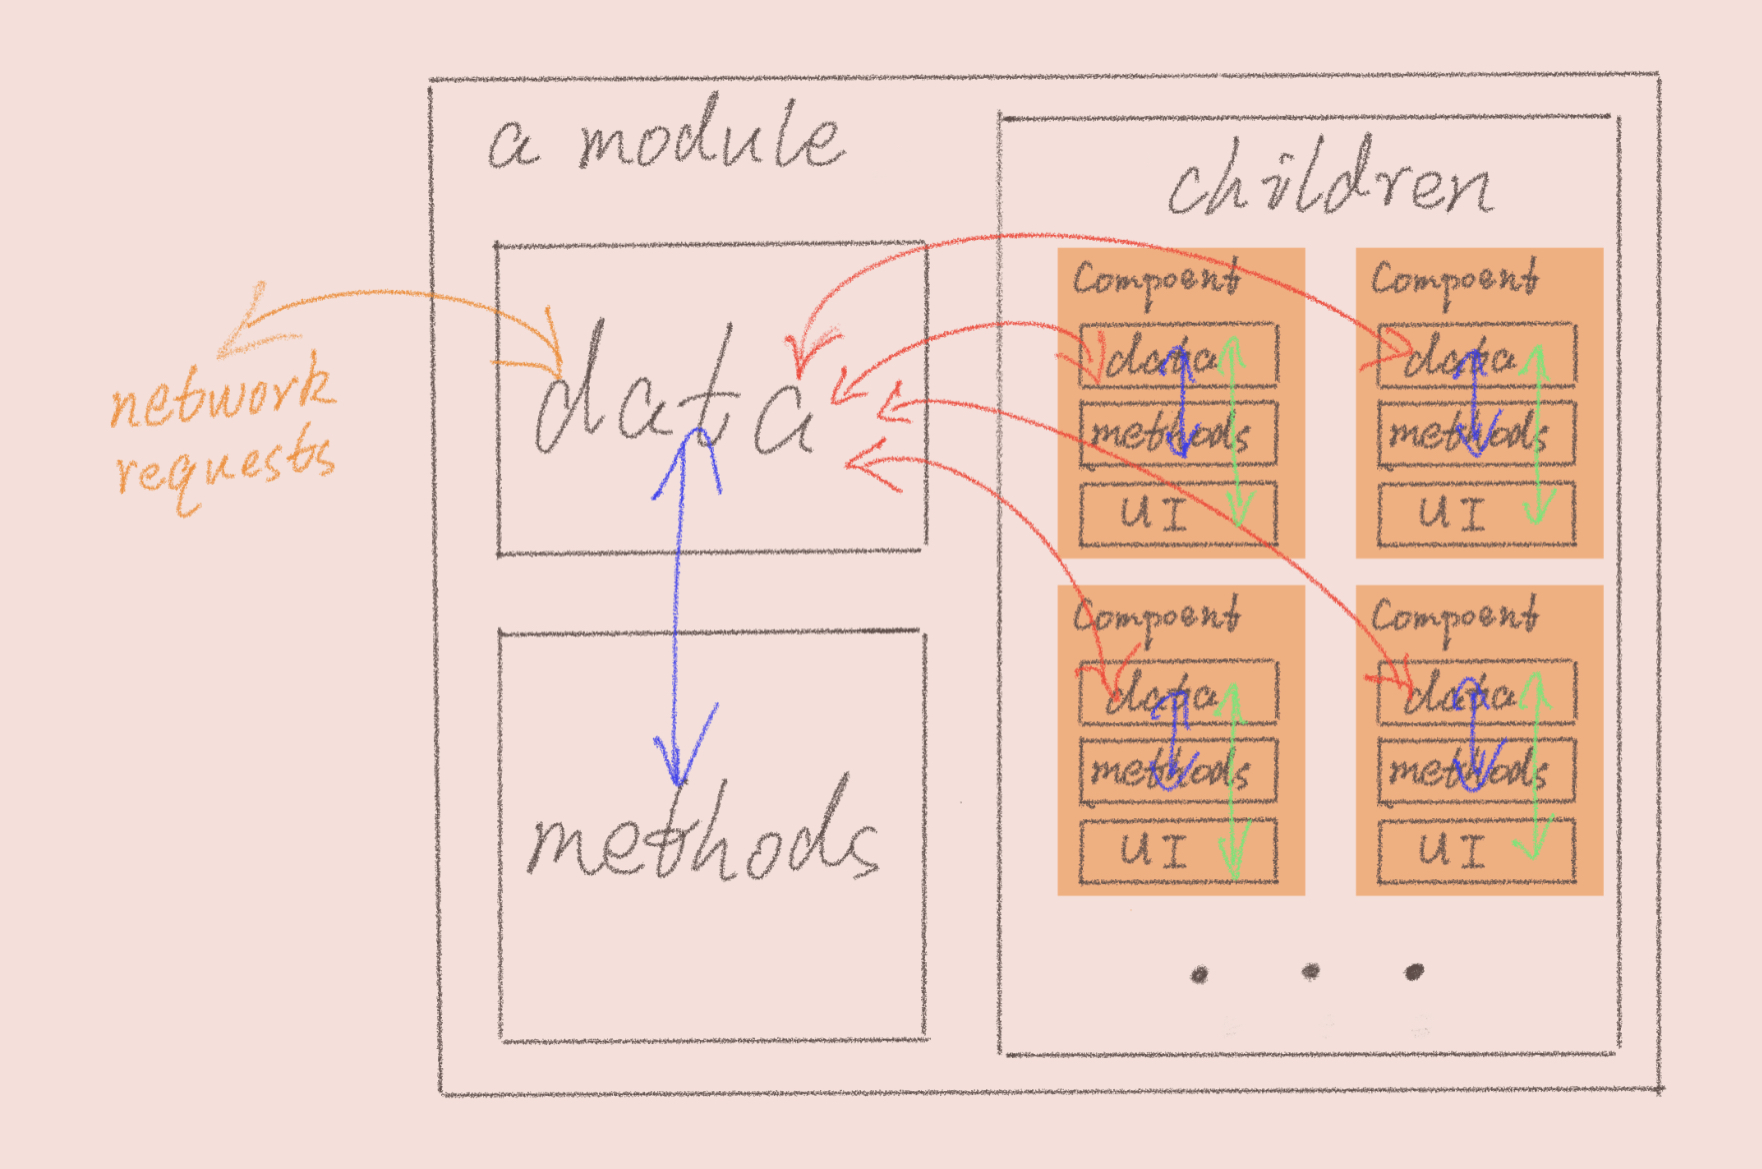 a module
children
network
requests
data
methods
Compoent
data
methods
UI
Compoent
data
methods
UI
Compoent
data
methods
UI
Compoent
data
methods
UI